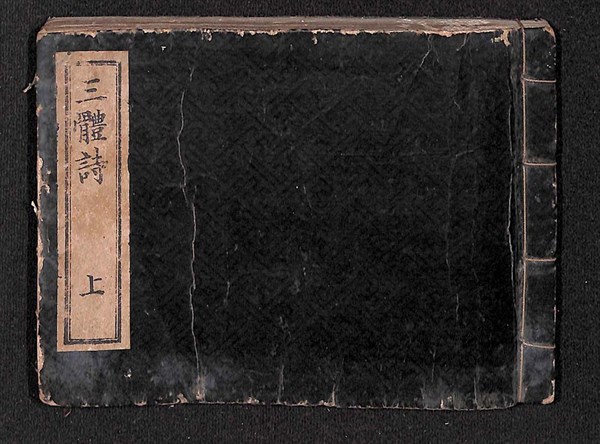 三體詩
上